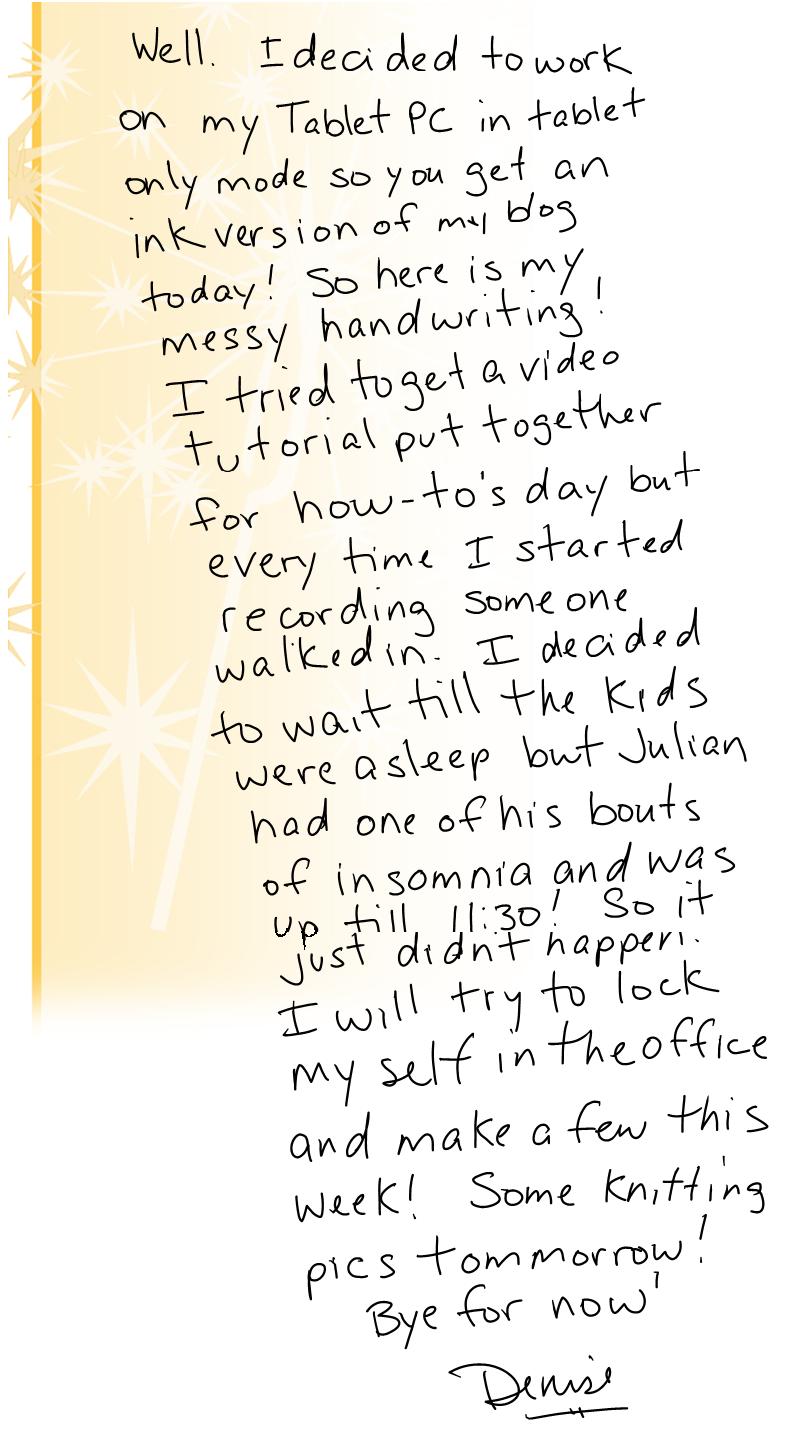 Well. I decided to work
on my Tablet PC in tablet
only mode so you get an
ink version of my blog
today! So here is my
messy handwriting!
I tried to get a video
tutorial put together
for how-to's day but
every time I started
recording someone
walked in. I decided
to wait till the kids
were asleep but Julian
had one of his bouts
of insomnia and was
up till 11:30! So it
just didn't happen.
I will try to lock
my self in the office
and make a few this
week! Some knitting
pics tommorrow!
Bye for now!
Denise